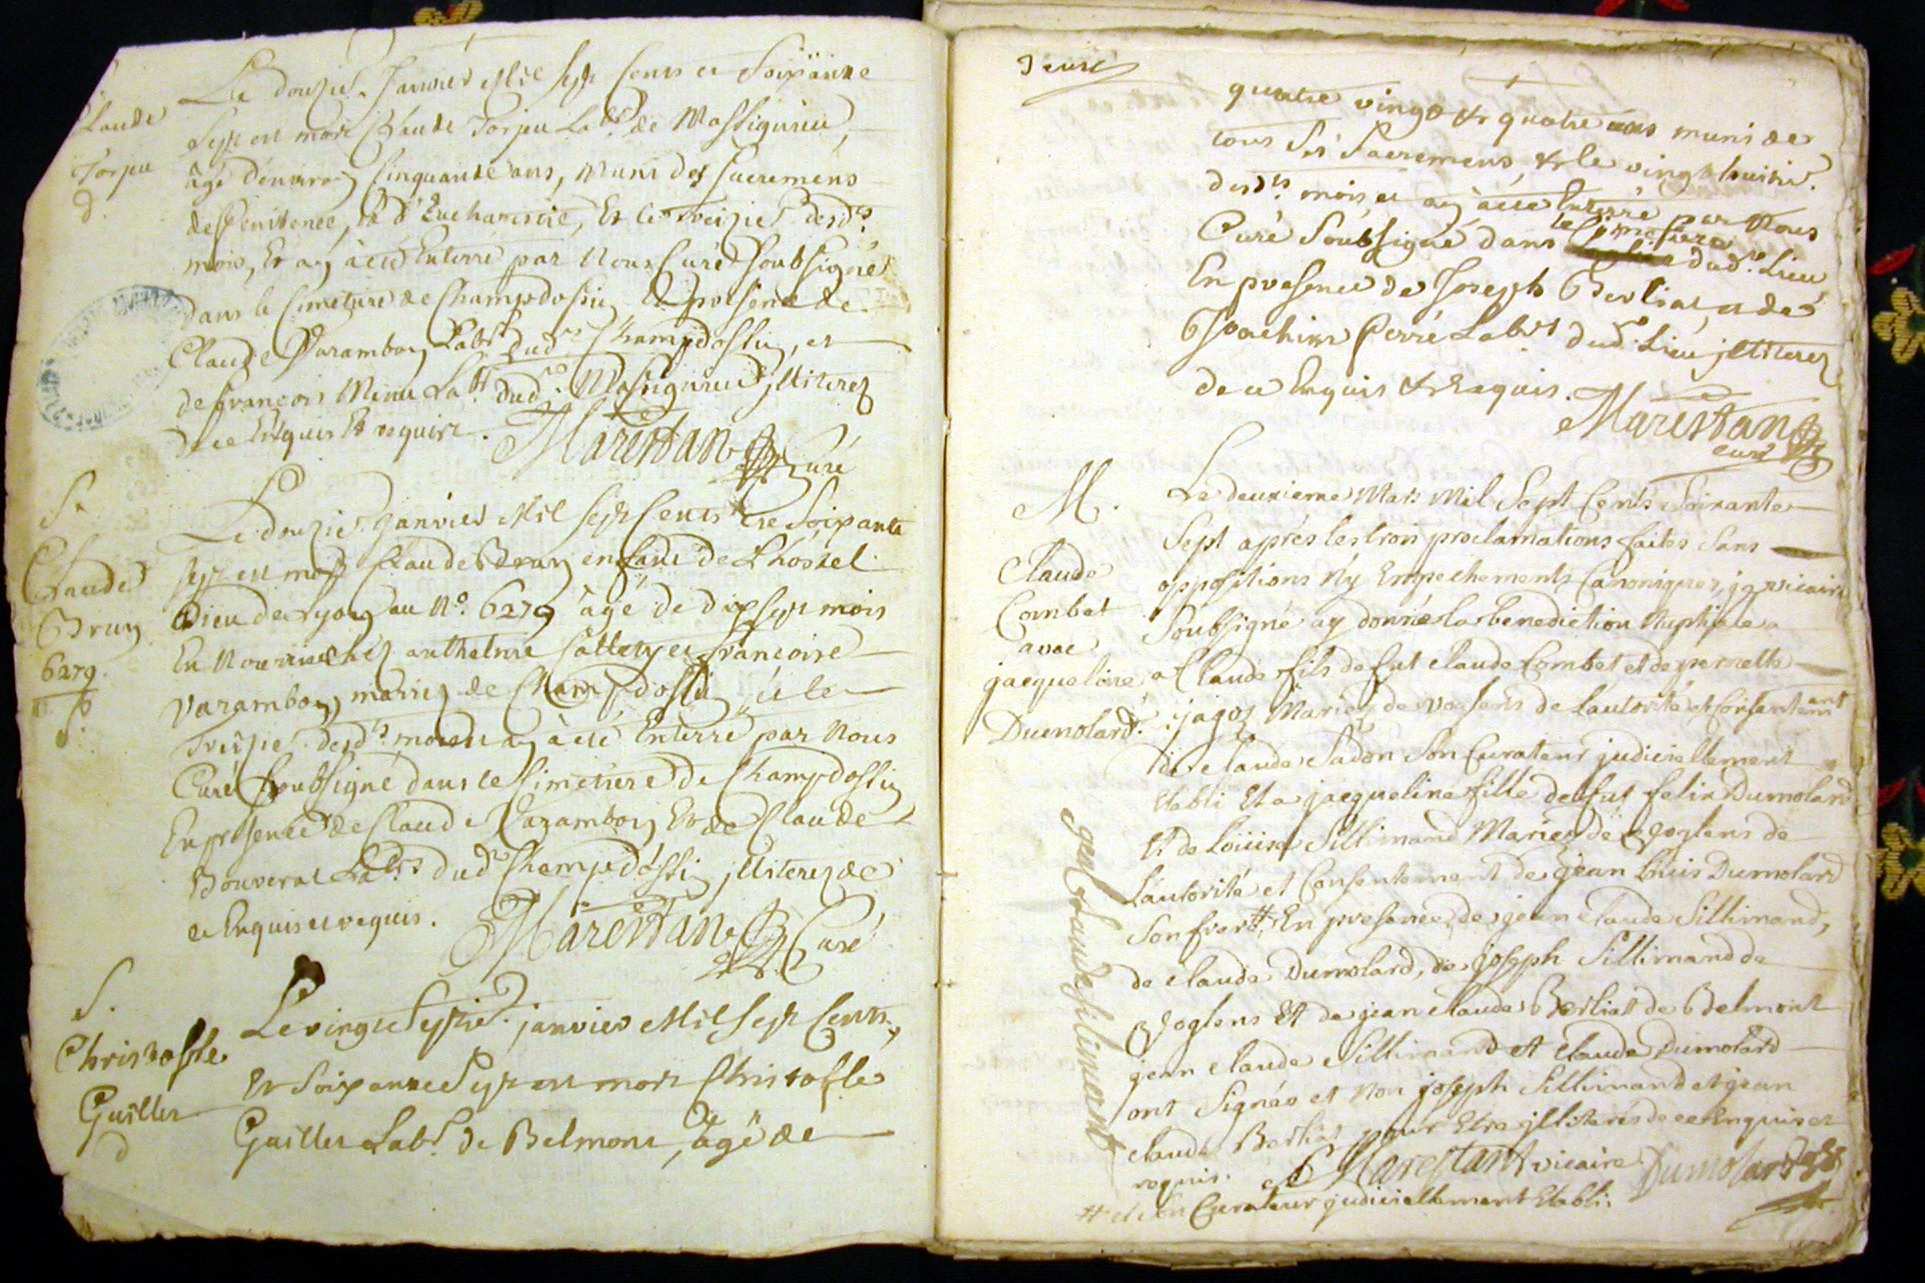 Claude
Torpu
d.
Le douzie. Janvier Mil Sept Cents et Soixante
Sept est mort Claude Torpu Labr. de Massignieu,
âgé d'environ Cinquante ans, muni des Sacremens
de Penitence, et d'Eucharistie, Et le treizie desds.
mois, Et an à été Enterré par Nous Curé Soubsigné
dans le Cimetiere de Champdossin En presence de
Claude Varambon Labr. dud. Champdossin, et
de françois Minu Labr. dud. Massignieu jlliterez
de ce Enquis Et requis. Marestan Curé
S.
Claude
Brun
6279
Le douzie. Janvier Mil Sept Cents et Soixante
Sept est mort Claude Brun enfant de L'hostel
Dieu de Lyon au No. 6279 âgé de dix sept mois
En Nourrice chez anthelme Cattin et francoise
Varambon mariez de Champdossin, et le
Treizie. desds. mois et an à été Enterré par Nous
Curé Soubsigné dans le Cimetiere de Champdossin
En presence de Claude Varambon Et de Claude
Bouverat Labrs. dud. Champdossin jlliterez de
ce Enquis et requis. Marestan Curé
S.
Christofle
Guiller
d
Le vingt Septie. janvier Mil Sept Cents,
Et Soixante Sept est mort Christofle
Guiller Labr. de Belmont, âgé de
quatre vingt & quatre ans muni de
tous Ses Sacremens, & le vingt huitie.
desds. mois et an à été Enterré par Nous
Curé Soubsigné dans le Cimetiere dud. Lieu
En presence de Joseph Berliat, et de
Joachim Perré Labrs. dud. Lieu jlliterez
de ce Enquis & Requis.
Marestan
curé
M.
Claude
Combet
avec
jacqueline
Dumolard.
Le deuxieme Mars Mil Sept Cents Soixante
Sept aprés les trois proclamations faites Sans
oppositions ny Empechements Canoniques, je vicaire
Soubsigné ay donné la benediction Nuptiale
a Claude fils de fut claude Combet et de pernette
jagoz Mariez de vousens de L'autorité et consentement
de Claude Sadon Son Curateur judiciellement
Etabli Et a jacqueline fille de fut felix Dumolard
Et de Loüise Sillimand Mariez de Voglens de
L'autorité et Consentement de jean Louis Dumolard
Son frere #, En presence de jean Claude Sillimand,
de Claude Dumolard, de joseph Sillimand de
Voglens Et de jean claude Berliat de Belmont
jean claude Sillimand et Claude Dumolard
ont Signés et Non joseph Sillimand et jean
claude Berliat pour Etre jlliterés de ce Enquis et
requis. Marestan vicaire Dumolard
# et Son Curateur judiciellement Etabli.
jean Claude silimant